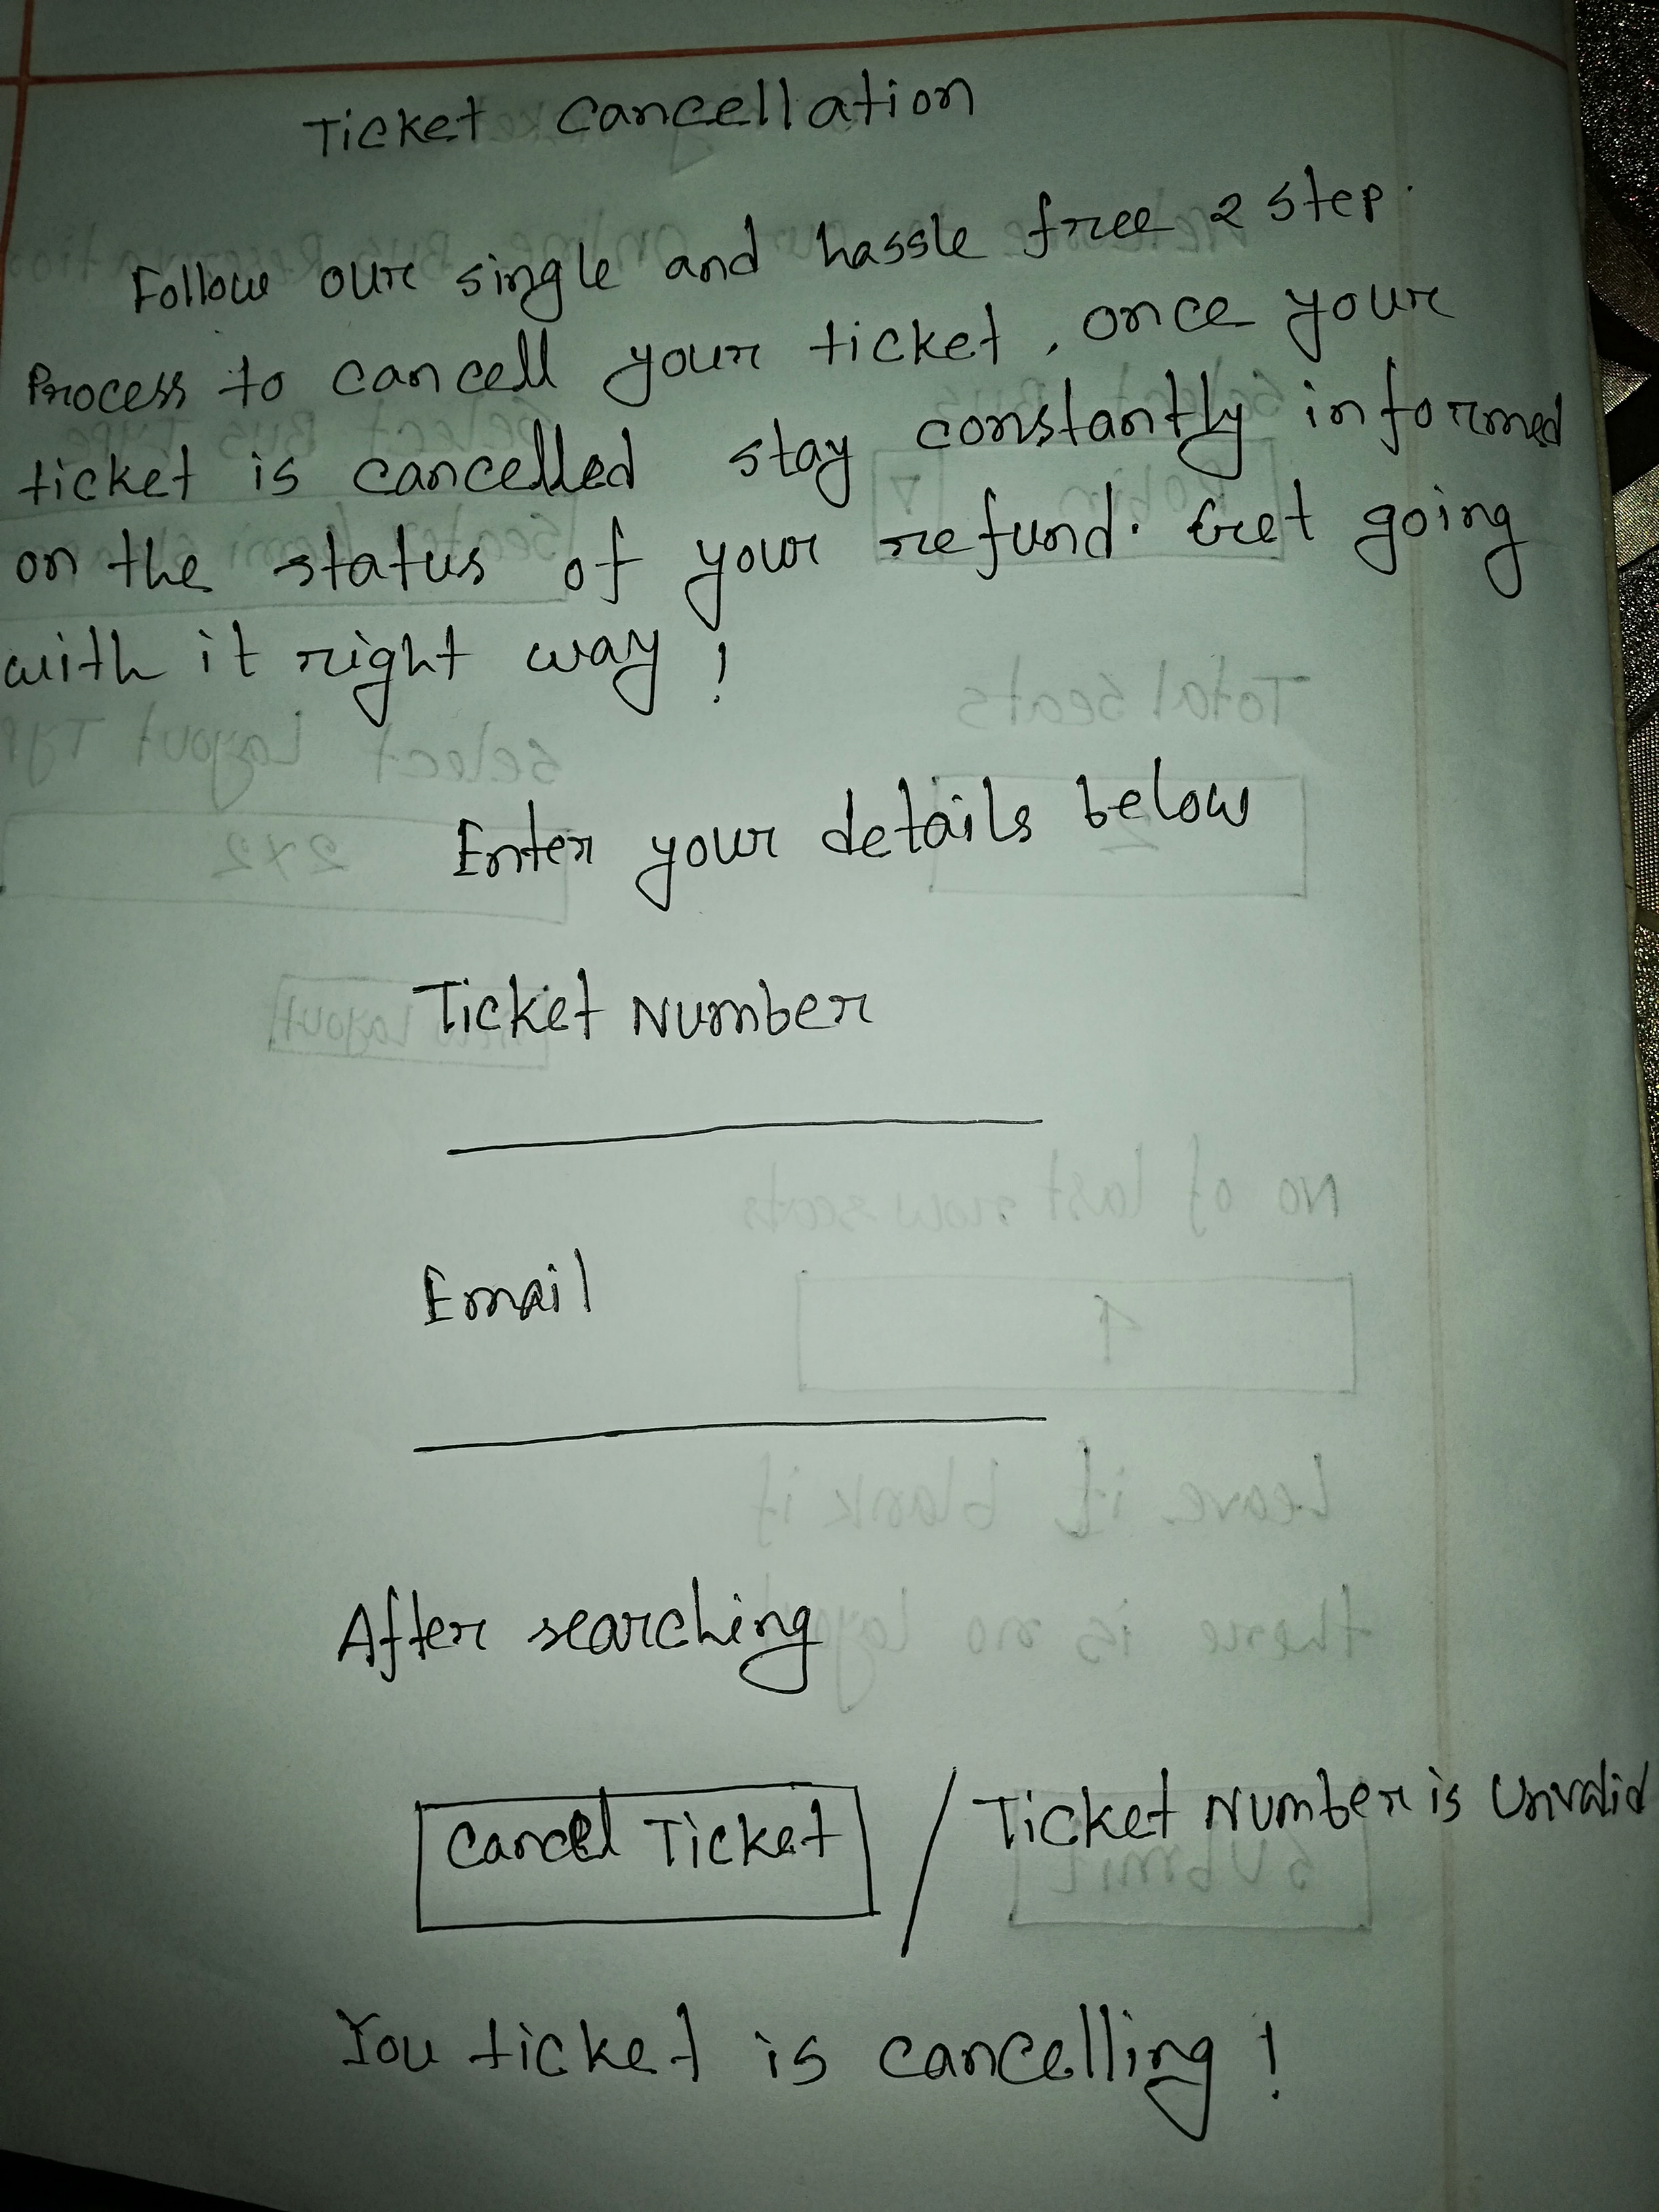 Ticket cancellation
Follow our single and hassle free 2 step
Process to cancell your ticket, once your
ticket is cancelled stay constantly informed
on the status of your refund. Get going
with it right way!
Enter your details below
Ticket Number
Email
After searching
Cancel Ticket / Ticket Number is Unvalid
You ticket is cancelling!